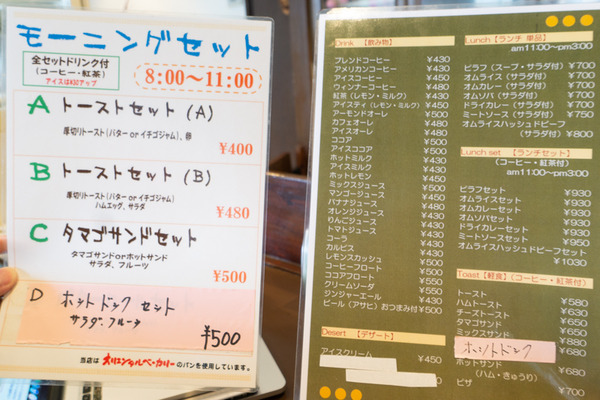 モーニングセット
全セットドリンク付
(コーヒー・紅茶)
アイスは¥32アップ
8:00～11:00
A トーストセット (A)
厚切りトースト(バター or イチゴジャム)、卵
¥400
B トーストセット (B)
厚切りトースト(バター or イチゴジャム)
ハムエッグ、サラダ
¥480
C タマゴサンドセット
タマゴサンドorホットサンド
サラダ、フルーツ
¥500
D ホットドック セット
サラダ・フルーツ
¥500
当店は オリエンタルベーカリー のパンを使用しています。
Drink 【飲み物】
ブレンドコーヒー ¥430
アメリカンコーヒー ¥430
アイスコーヒー ¥450
ウィンナーコーヒー ¥480
紅茶(レモン・ミルク) ¥430
アイスティ(レモン・ミルク) ¥450
アーモンドオーレ ¥500
カフェオーレ ¥450
アイスオーレ ¥500
ココア ¥500
アイスココア ¥500
ホットミルク ¥430
アイスミルク ¥430
ホットレモン ¥450
ミックスジュース ¥500
マンゴージュース ¥450
バナナジュース ¥480
オレンジジュース ¥450
りんごジュース ¥450
トマトジュース ¥430
コーラ ¥430
カルピス ¥430
レモンスカッシュ ¥500
コーヒーフロート ¥500
ココアフロート ¥550
クリームソーダ ¥550
ジンジャーエール ¥430
ビール(アサヒ)おつまみ付 ¥500
Desert 【デザート】
アイスクリーム ¥450
Lunch【ランチ 単品】
am11:00～pm3:00
ピラフ(スープ・サラダ付) ¥700
オムライス(サラダ付) ¥700
オムカレー(サラダ付) ¥700
オムソバ(サラダ付) ¥700
ドライカレー(サラダ付) ¥700
ミートソース(サラダ付) ¥750
オムライスハッシュドビーフ
(サラダ付) ¥800
Lunch set 【ランチセット】
(コーヒー・紅茶付)
am11:00～pm3:00
ピラフセット ¥930
オムライスセット ¥930
オムカレーセット ¥930
オムソバセット ¥930
ドライカレーセット ¥930
ミートソースセット ¥950
オムライスハッシュドビーフセット
¥1030
Toast【軽食】(コーヒー・紅茶付)
トースト ¥580
ハムトースト ¥630
チーズトースト ¥650
タマゴサンド ¥650
ミックスサンド ¥680
ホットドック ¥680
ホットサンド
(ハム・きゅうり) ¥680
ピザ ¥700